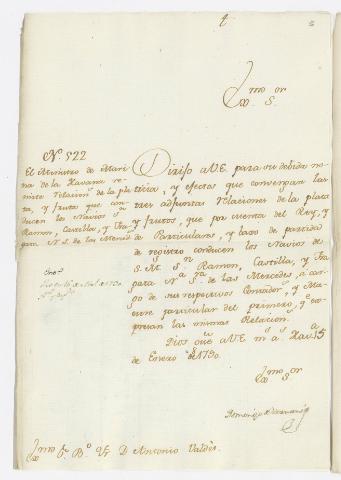 Exmo Sor
No. 522
El Ministro de Mari
na de la Havana re
mite Relacions. de la pla
ta, y frutos que con
ducen los Navios Sn.
Ramon, Castilla, y Fra
gata N. S. de las Merceds.
Dirijo a V.E. para su debida no
ticia, y efectos que convengan las
tres adjuntas Relaciones de la plata
y frutos, que por cuenta del Rey, y
de Particulares, y baxo de partida
de registro conducen los Navios de
S. M. Sn. Ramon, Castilla, y Fra
gata Na. Sa. de las Mercedes, a car
go de sus respectivos Contadors. y Ma
estre particular del primero, qe. ex
presan las mismas Relacions.
Dios gue. a V.E. ms. as. Hava. 15
de Enero de 1790.
Exmo Sor
Exmo Sr. Bo. Fr. Dn Antonio Valdès.